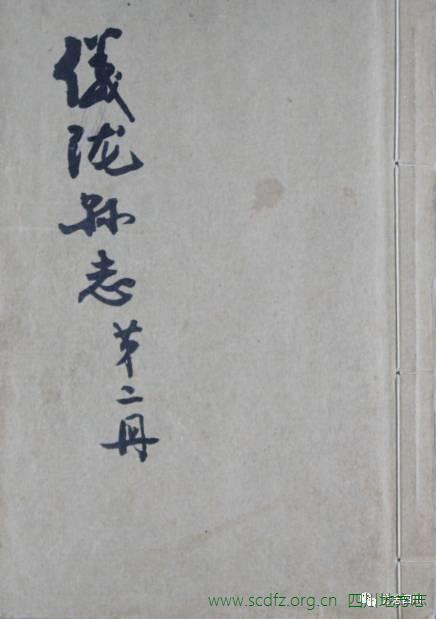 儀陇县志
第二册
www.scdfz.org.cn 四川地方志